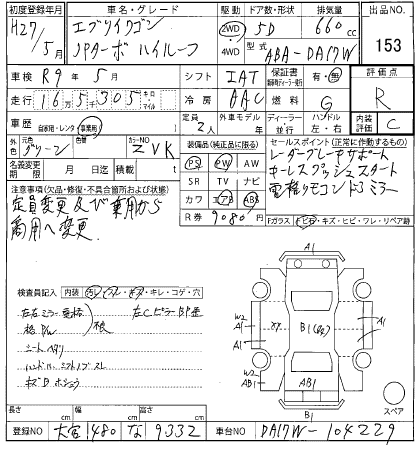 初度登録年月 車名・グレード 駆動 ドア数・形状 排気量 出品NO.
H27年 5月 エブリイワゴン JPターボ ハイルーフ 2WD 4WD 5D 660cc 153
型式 ABA-DA17W
車検 R9年 5月 シフト IAT 保証書 有・無 評価点
走行 16万5千305 キロ マイル 冷房 AAC 燃料 G R
車歴 自家用・レンタ・事業用 定員 2人 外車モデル 年 ディーラー 並行 ハンドル 左・右 内装評価 C
外色 元色 グリーン 色替 カラーNO ZVK 装備品(純正品に限る) セールスポイント(正常に作動するもの)
名義変更期限 月 日迄 積載 t PS PW AW レーダーブレーキサポート
SR TV ナビ キーレスプッシュスタート
注意事項(欠品・修復・不具合箇所および状態) カワ エアB ABS 電格リモコンドアミラー
定員変更及び乗用から R券 9080円
商用へ変更 Fガラス トビ石・キズ・ヒビ・ワレ・リペア跡
A1
検査員記入 内装 汚レ・スレ・キズ・キレ・コゲ・穴
左右ミラー
W2 A1 A1
XX
B1
A1 A1
W2
AB1
AB1
シートヘタリ
B1
スペア
長さ cm 幅 cm 高さ cm
登録NO 大宮 480 な 9332 車台NO DA17W-104229